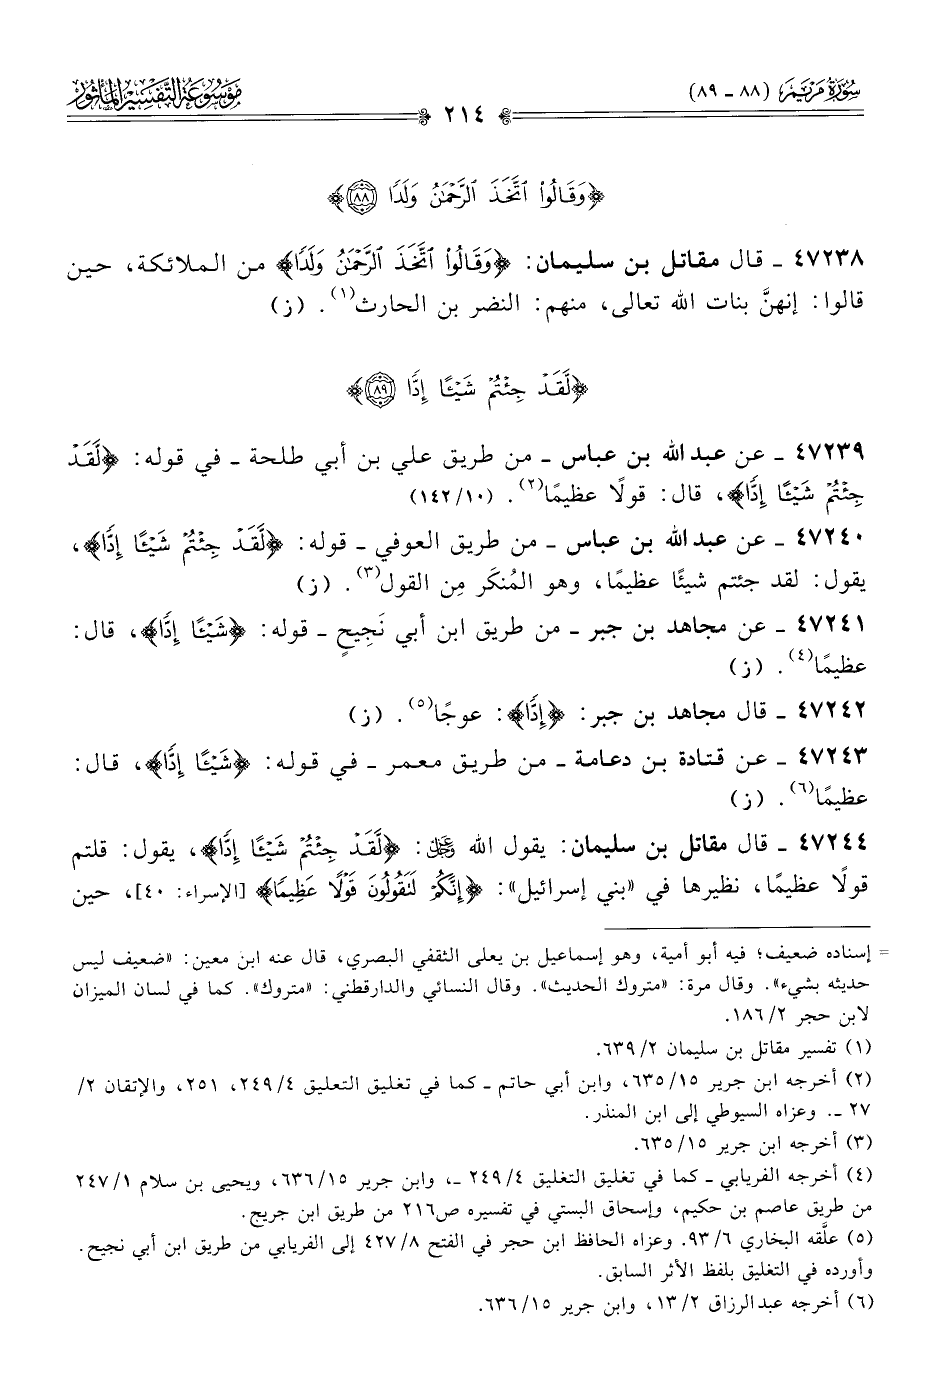 سُورَةُ مَرْيَمَ (٨٨ - ٨٩)
٢١٤
مَوْسُوعَةُ التَّفْسِيرِ المَأْثُورِ
﴿وَقَالُوا۟ ٱتَّخَذَ ٱلرَّحْمَٰنُ وَلَدًا ٨٨﴾
٤٧٢٣٨ - قال مقاتل بن سليمان: ﴿وَقَالُوا۟ ٱتَّخَذَ ٱلرَّحْمَٰنُ وَلَدًا﴾ من الملائكة، حين
قالوا: إنهنَّ بنات الله تعالى، منهم: النضر بن الحارث(١). (ز)
﴿لَّقَدْ جِئْتُمْ شَيْـًٔا إِدًّا ٨٩﴾
٤٧٢٣٩ - عن عبد الله بن عباس - من طريق علي بن أبي طلحة - في قوله: ﴿لَّقَدْ
جِئْتُمْ شَيْـًٔا إِدًّا﴾، قال: قولًا عظيمًا(٢). (١٤٢/١٠)
٤٧٢٤٠ - عن عبد الله بن عباس - من طريق العوفي - قوله: ﴿لَّقَدْ جِئْتُمْ شَيْـًٔا إِدًّا﴾،
يقول: لقد جئتم شيئًا عظيمًا، وهو المُنكَر مِن القول(٣). (ز)
٤٧٢٤١ - عن مجاهد بن جبر - من طريق ابن أبي نَجِيحٍ - قوله: ﴿شَيْـًٔا إِدًّا﴾، قال:
عظيمًا(٤). (ز)
٤٧٢٤٢ - قال مجاهد بن جبر: ﴿إِدًّا﴾: عوجًا(٥). (ز)
٤٧٢٤٣ - عن قتادة بن دعامة - من طريق معمر - في قوله: ﴿شَيْـًٔا إِدًّا﴾، قال:
عظيمًا(٦). (ز)
٤٧٢٤٤ - قال مقاتل بن سليمان: يقول الله ﷿: ﴿لَّقَدْ جِئْتُمْ شَيْـًٔا إِدًّا﴾، يقول: قلتم
قولًا عظيمًا، نظيرها في «بني إسرائيل»: ﴿إِنَّكُمْ لَتَقُولُونَ قَوْلًا عَظِيمًا﴾ [الإسراء: ٤٠]، حين
= إسناده ضعيف؛ فيه أبو أمية، وهو إسماعيل بن يعلى الثقفي البصري، قال عنه ابن معين: «ضعيف ليس
حديثه بشيء». وقال مرة: «متروك الحديث». وقال النسائي والدارقطني: «متروك». كما في لسان الميزان
لابن حجر ١٨٦/٢.
(١) تفسير مقاتل بن سليمان ٦٣٩/٢.
(٢) أخرجه ابن جرير ٦٣٥/١٥، وابن أبي حاتم - كما في تغليق التعليق ٢٤٩/٤، ٢٥١، والإتقان ٢/
٢٧ -. وعزاه السيوطي إلى ابن المنذر.
(٣) أخرجه ابن جرير ٦٣٥/١٥.
(٤) أخرجه الفريابي - كما في تغليق التغليق ٢٤٩/٤ -، وابن جرير ٦٣٦/١٥، ويحيى بن سلام ٢٤٧/١
من طريق عاصم بن حكيم، وإسحاق البستي في تفسيره ص٢١٦ من طريق ابن جريج.
(٥) علَّقه البخاري ٩٣/٦. وعزاه الحافظ ابن حجر في الفتح ٤٢٧/٨ إلى الفريابي من طريق ابن أبي نجيح.
وأورده في التغليق بلفظ الأثر السابق.
(٦) أخرجه عبدالرزاق ١٣/٢، وابن جرير ٦٣٦/١٥.